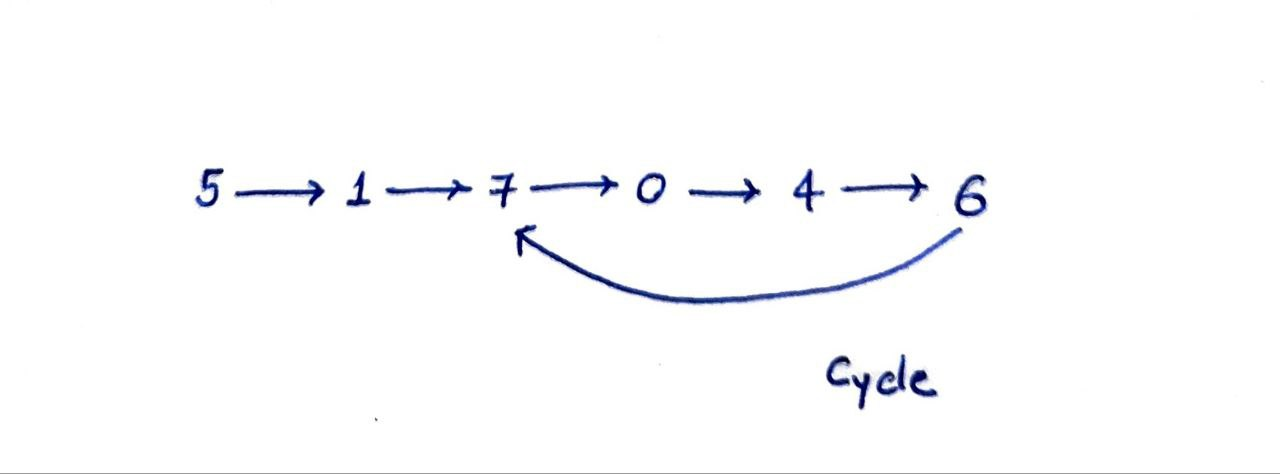 5 → 1 → 7 → 0 → 4 → 6
Cycle